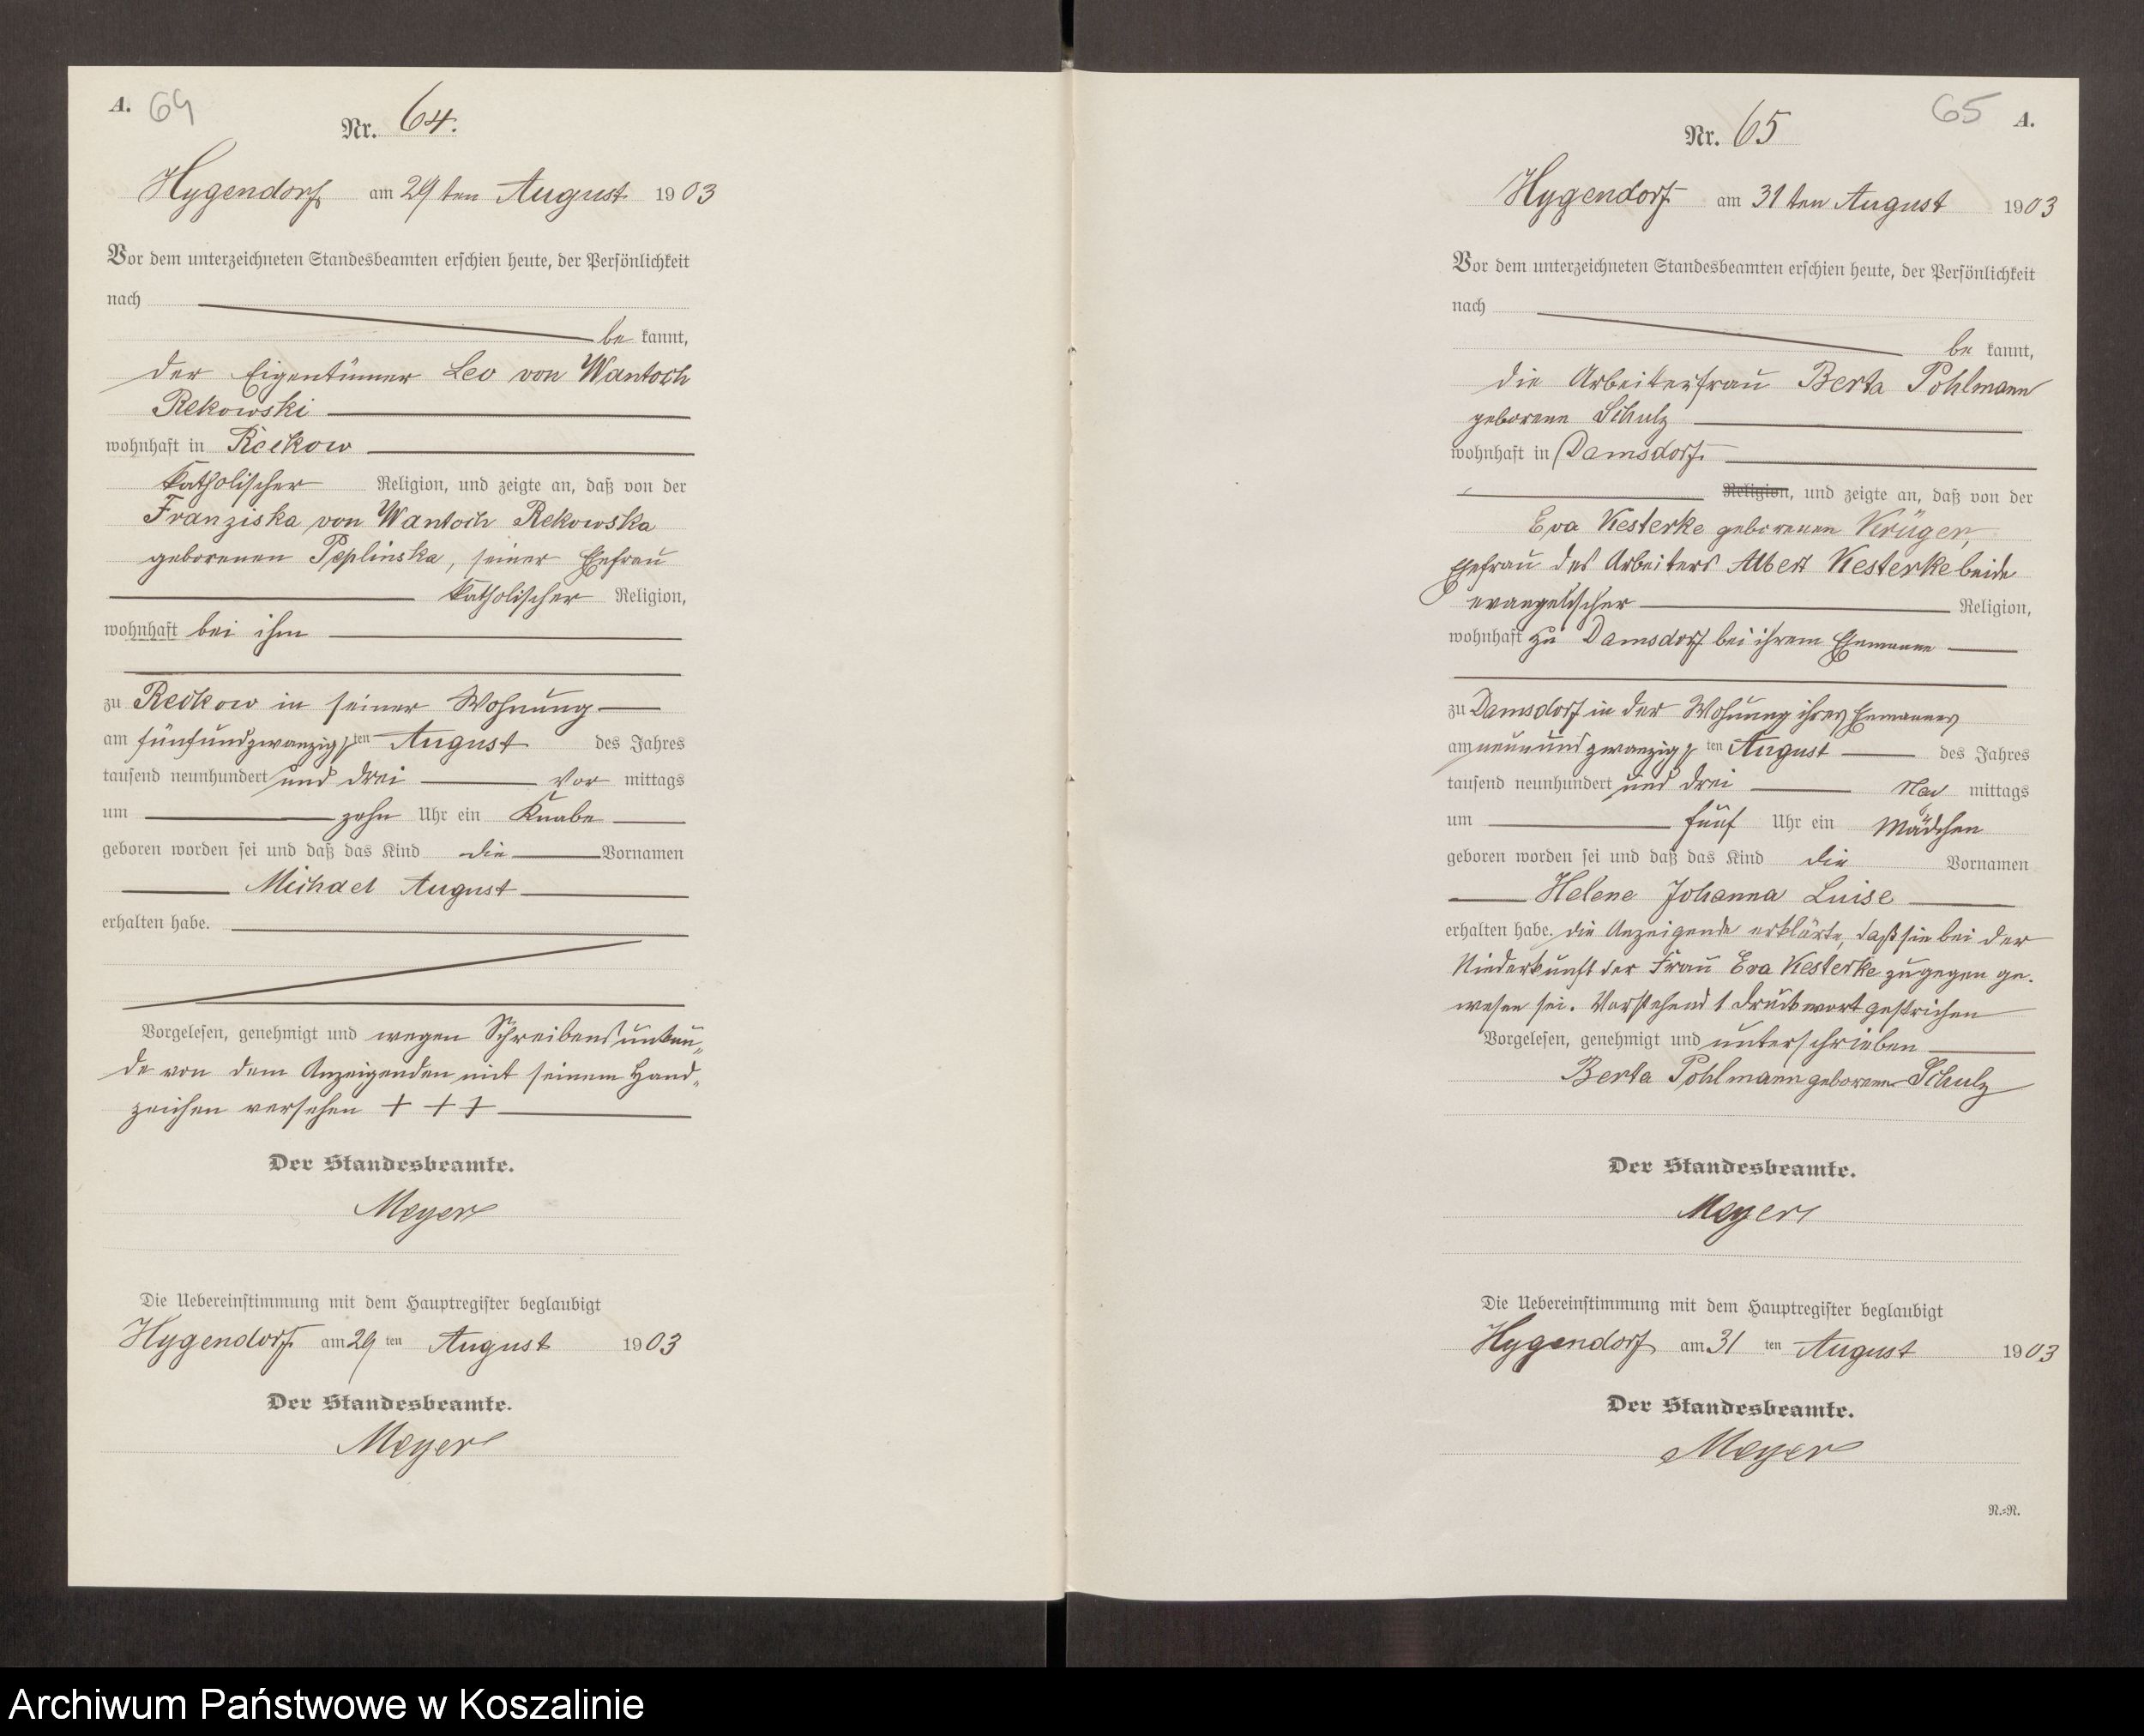 A. 64
Nr. 64.
Hygendorf am 29ten August 1903
Vor dem unterzeichneten Standesbeamten erschien heute, der Persönlichkeit
nach
be kannt,
der Eigentümer Leo von Wantoch
Rekowski
wohnhaft in Reckow
katholischer Religion, und zeigte an, daß von der
Franziska von Wantoch Rekowska
geborenen Peplinska, seiner Ehefrau
katholischer Religion,
wohnhaft bei ihm
zu Reckow in seiner Wohnung
am fünfundzwanzigsten August des Jahres
tausend neunhundert und drei Vor mittags
um zehn Uhr ein Knabe
geboren worden sei und daß das Kind die Vornamen
Michael August
erhalten habe.
Vorgelesen, genehmigt und wegen Schreibensunkun-
de von dem Anzeigenden mit seinem Hand-
zeichen versehen + + +
Der Standesbeamte.
Meyer
Die Uebereinstimmung mit dem Hauptregister beglaubigt
Hygendorf am 29 ten August 1903
Der Standesbeamte.
Meyer
65 A.
Nr. 65
Hygendorf am 31ten August 1903
Vor dem unterzeichneten Standesbeamten erschien heute, der Persönlichkeit
nach
be kannt,
die Arbeiterfrau Berta Pohlmann
geborene Schulz
wohnhaft in Damsdorf
Religion, und zeigte an, daß von der
Eva Kesterke geborenen Krüger,
Ehefrau des Arbeiters Albert Kesterke beide
evangelischer Religion,
wohnhaft zu Damsdorf bei ihrem Ehemanne
zu Damsdorf in der Wohnung ihres Ehemannes
am neunundzwanzigsten August des Jahres
tausend neunhundert und drei Nach mittags
um fünf Uhr ein Mädchen
geboren worden sei und daß das Kind die Vornamen
Helene Johanna Luise
erhalten habe. die Anzeigende erklärte, daß sie bei der
Niederkunft der Frau Eva Kesterke zugegen ge-
wesen sei. Vorstehend 1 Druckwort gestrichen
Vorgelesen, genehmigt und unterschrieben
Berta Pohlmann geborene Schulz
Der Standesbeamte.
Meyer
Die Uebereinstimmung mit dem Hauptregister beglaubigt
Hygendorf am 31 ten August 1903
Der Standesbeamte.
Meyer
R.=R.
Archiwum Państwowe w Koszalinie